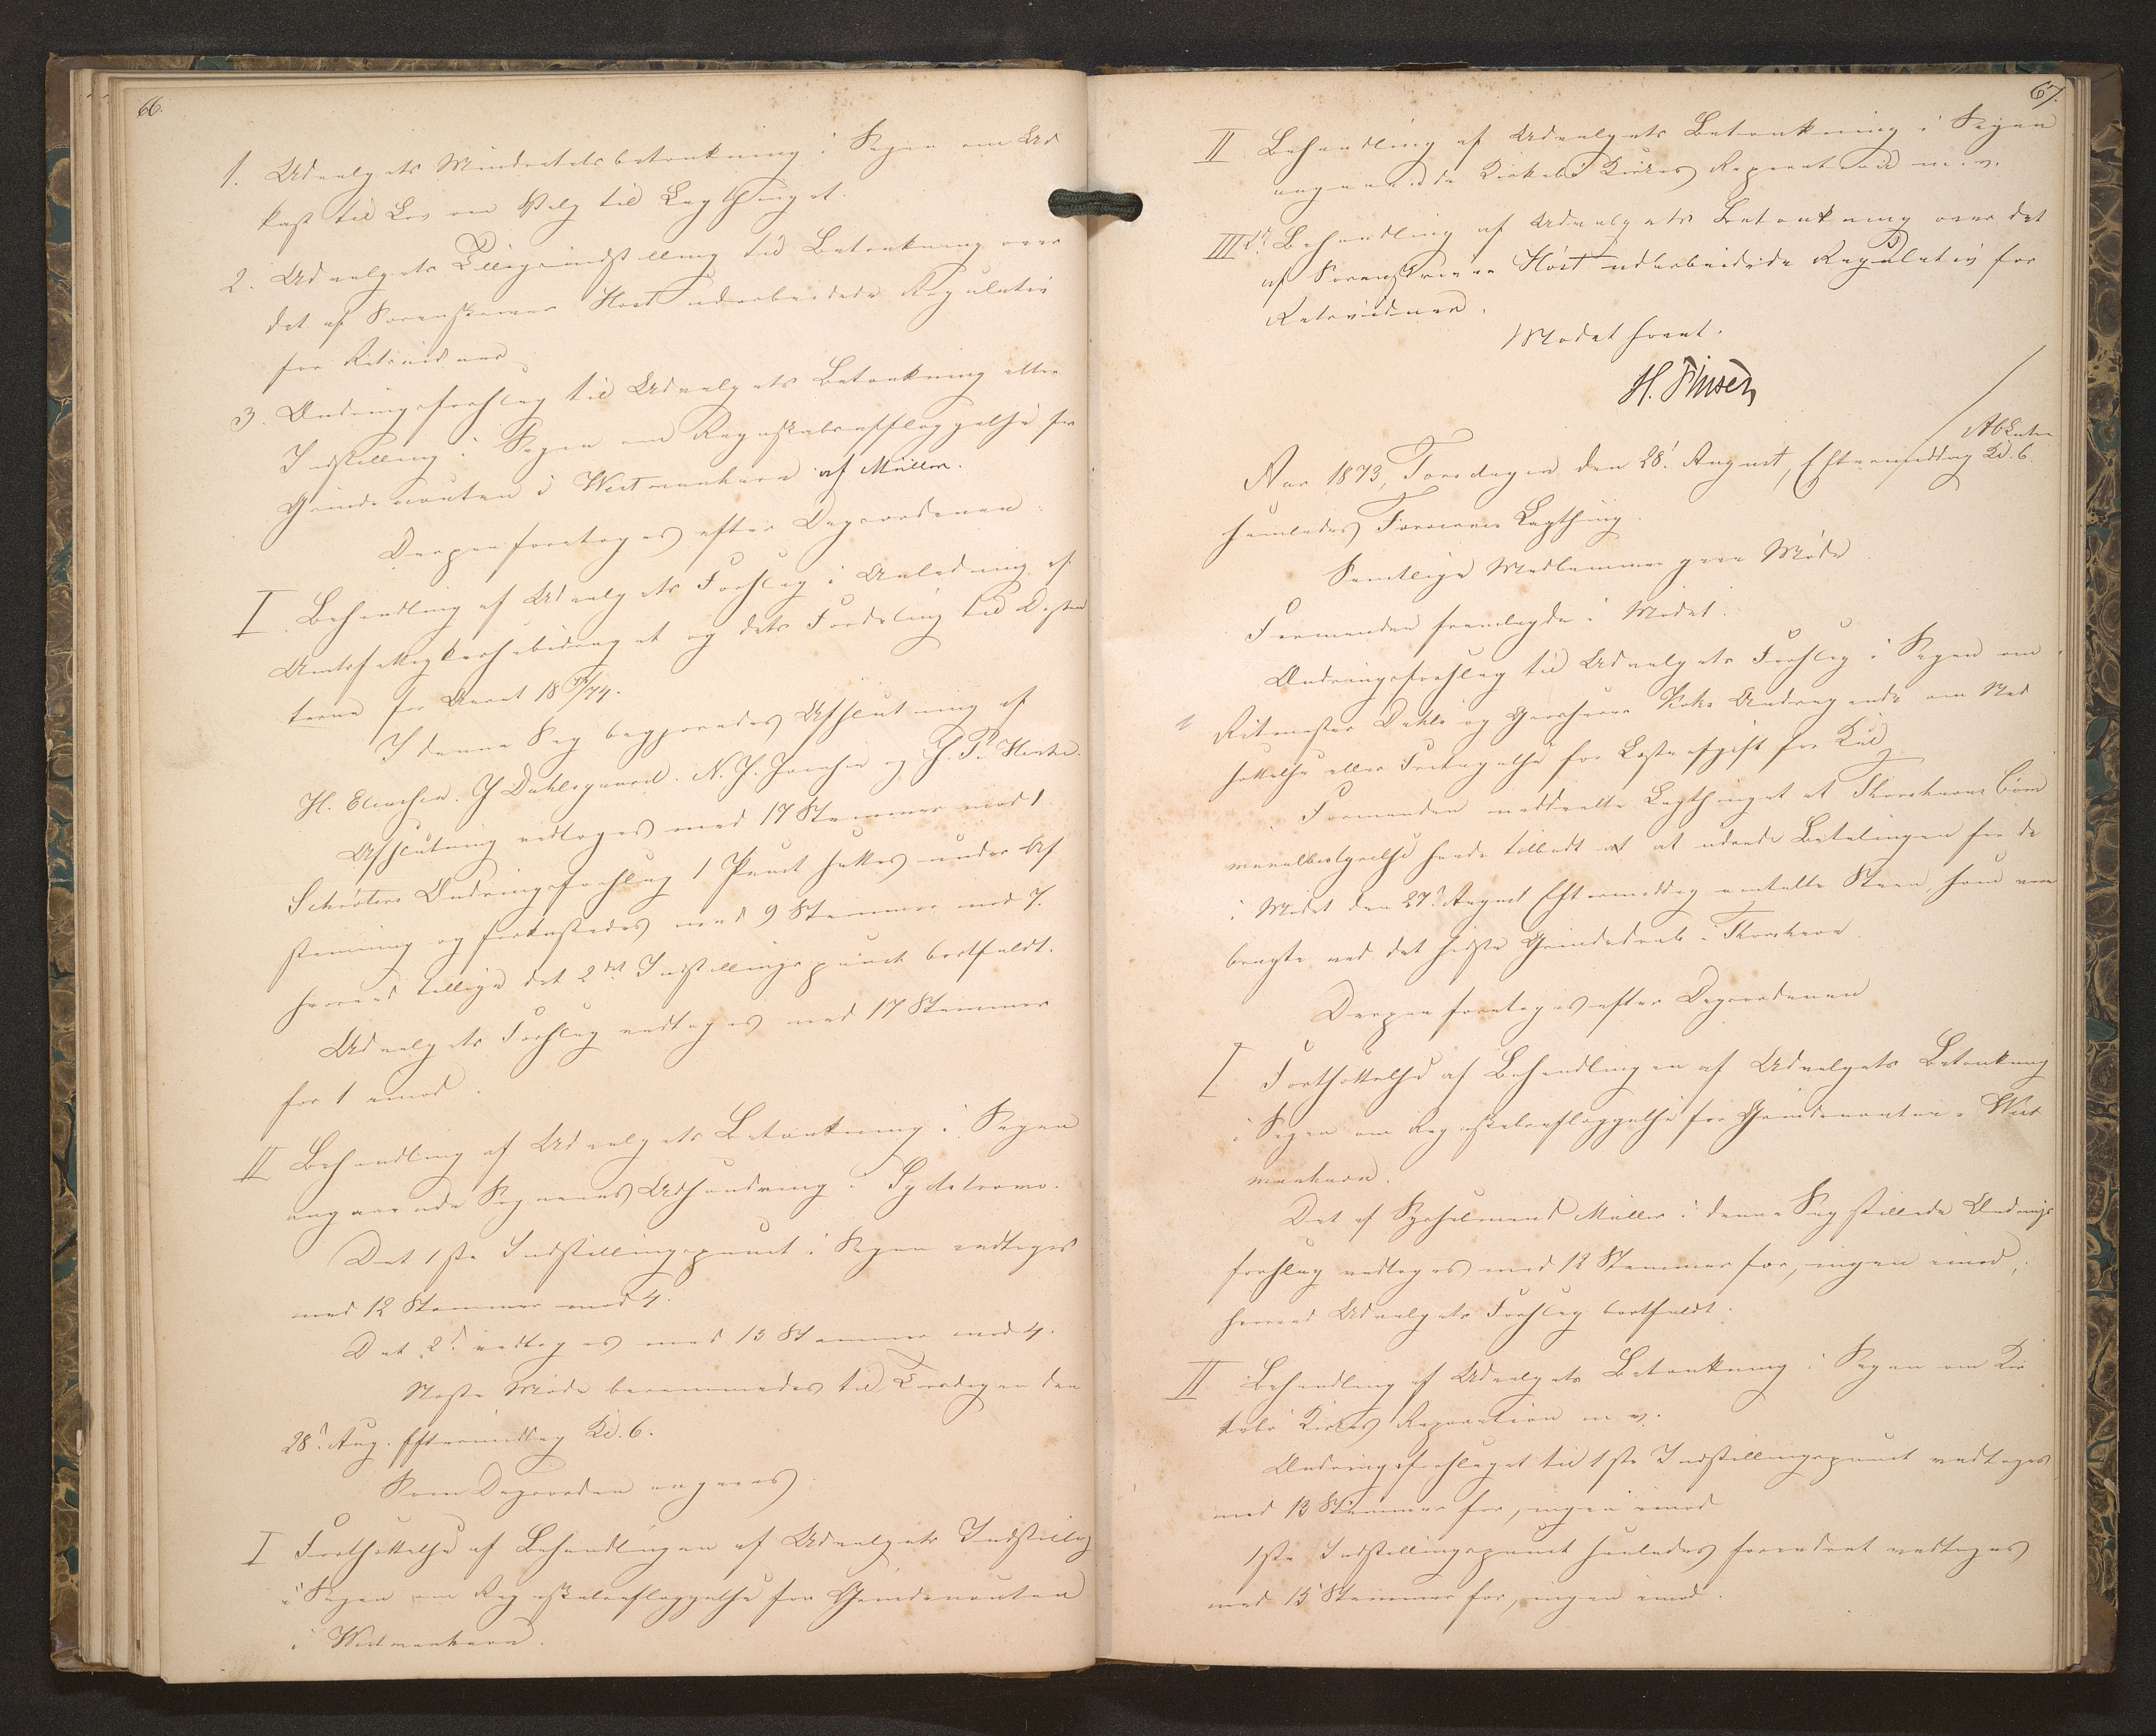 66.
1. Udvalgets Mindretalsbetænkning i Sagen om Ud
kast til Lov om Valg til Lagthinget.
2. Udvalgets Tillægsindstilling til Betænkning over
det af Sorenskriver Høst udarbeidede Regulativ
for Retsvidner
3. Ændringsforslag til Udvalgets Betænkning eller
Indstilling i Sagen om Regnskabsafflæggelse for
Grindenauten i Westmanhavn af Müller.
Derpaa foretoges efter Dagsordenen:
I. Behandling af Udvalgets Forslag i Anledning af
Amtsfattigkassebidraget og dets Fordeling til Distric
terne for Aaret 1873/74.
I denne Sag begjæredes Afslutning af
H. Eliasen. J Dahlsgaard. N. J. Joensen og J. P.
Afslutning vedtoges med 17 Stemmer mod 1
Schrøters Ændringsforslag 1 Punct sattes under Af
stemning og forkastedes med 9 Stemmer mod 7.
hvorved tillige det 2det Indstillingspunct bortfaldt.
Udvalgets Forslag vedtoges med 17 Stemmer
for 1 imod.
II Behandling af Udvalgets Betænkning i Sagen
angaaende Sognenes Udsondring i Syderstrømø.
Det 1ste Indstillingspunct i Sagen vedtoges
med 12 Stemmer mod 4.
Det 2d vedtoges med 13 Stemmer mod 4.
Næste Møde berammedes til Torsdagen den
28d Aug. Eftermiddag Kl. 6.
Som Dagsorden angaves
I Fortsættelse af Behandlingen af Udvalgets Indstilling
i Sagen om Regnskabsaflæggelse for Grindenauten
i Westmanhavn.
67.
II. Behandling af Udvalgets Betænkning i Sagen
angaaende Kirkebø Kirkes Reparation m. v.
III 2d Behandling af Udvalgets Betænkning over det
af Sorenskriver Høst udarbeidede Regulativ for
Retsvidner.
Mødet hævet.
H. Finsen
Aar 1873, Torsdagen den 28d August, Eftermiddag Kl. 6.
samledes Færøernes Lagthing.
Samtlige Medlemmer gave Møde
Formanden fremlagde i Mødet.
Ændringsforslag til Udvalgets Forslag i Sagen om
Ritmester Dahls og Andragende om Ned
sættelse eller Fritagelse for Lasteafgift for Kul
Formanden meddeelte Lagthinget at Thorshavns Com
munalbestyrelse havde tilbudt at at udrede Betalingen for de
i Mødet den 27d August Eftermiddag omtalte Steen, som vare
brugte ved det sidste Grindedrab i Thorshavn.
Derpaa foretoges efter Dagsordenen
I Fortsættelse af Behandlingen af Udvalgets Betænkning
i Sagen om Regnskabsaflæggelse for Grindenauten i West
manhavn.
Det af Sysselmand Müller i denne Sag stillede Ændrings
forslag vedtoges med 12 Stemmer for, ingen imod,
hvorved Udvalgets Forslag bortfaldt.
II Behandling af Udvalgets Betænkning i Sagen om Kir
kebø Kirkes Reparation m. v.
Ændringsforslaget til 1ste Indstillingspunct vedtoges
med 13 Stemmer for, ingen imod
1ste Indstillingspunct saaledes forandret vedtoges
med 15 Stemmer for, ingen imod.